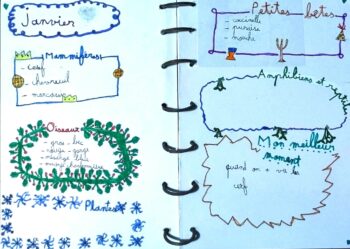 Janvier
Mammifères
- cerf
- chevreuil
- marcassin
Oiseaux
- gros-bec
- rouge-gorge
- mésange bleue
Plantes
Petites bêtes
- coccinelle
- punaise
- mouche
Amphibiens et
Mon meilleur
moment
quand on a vu les
cerf